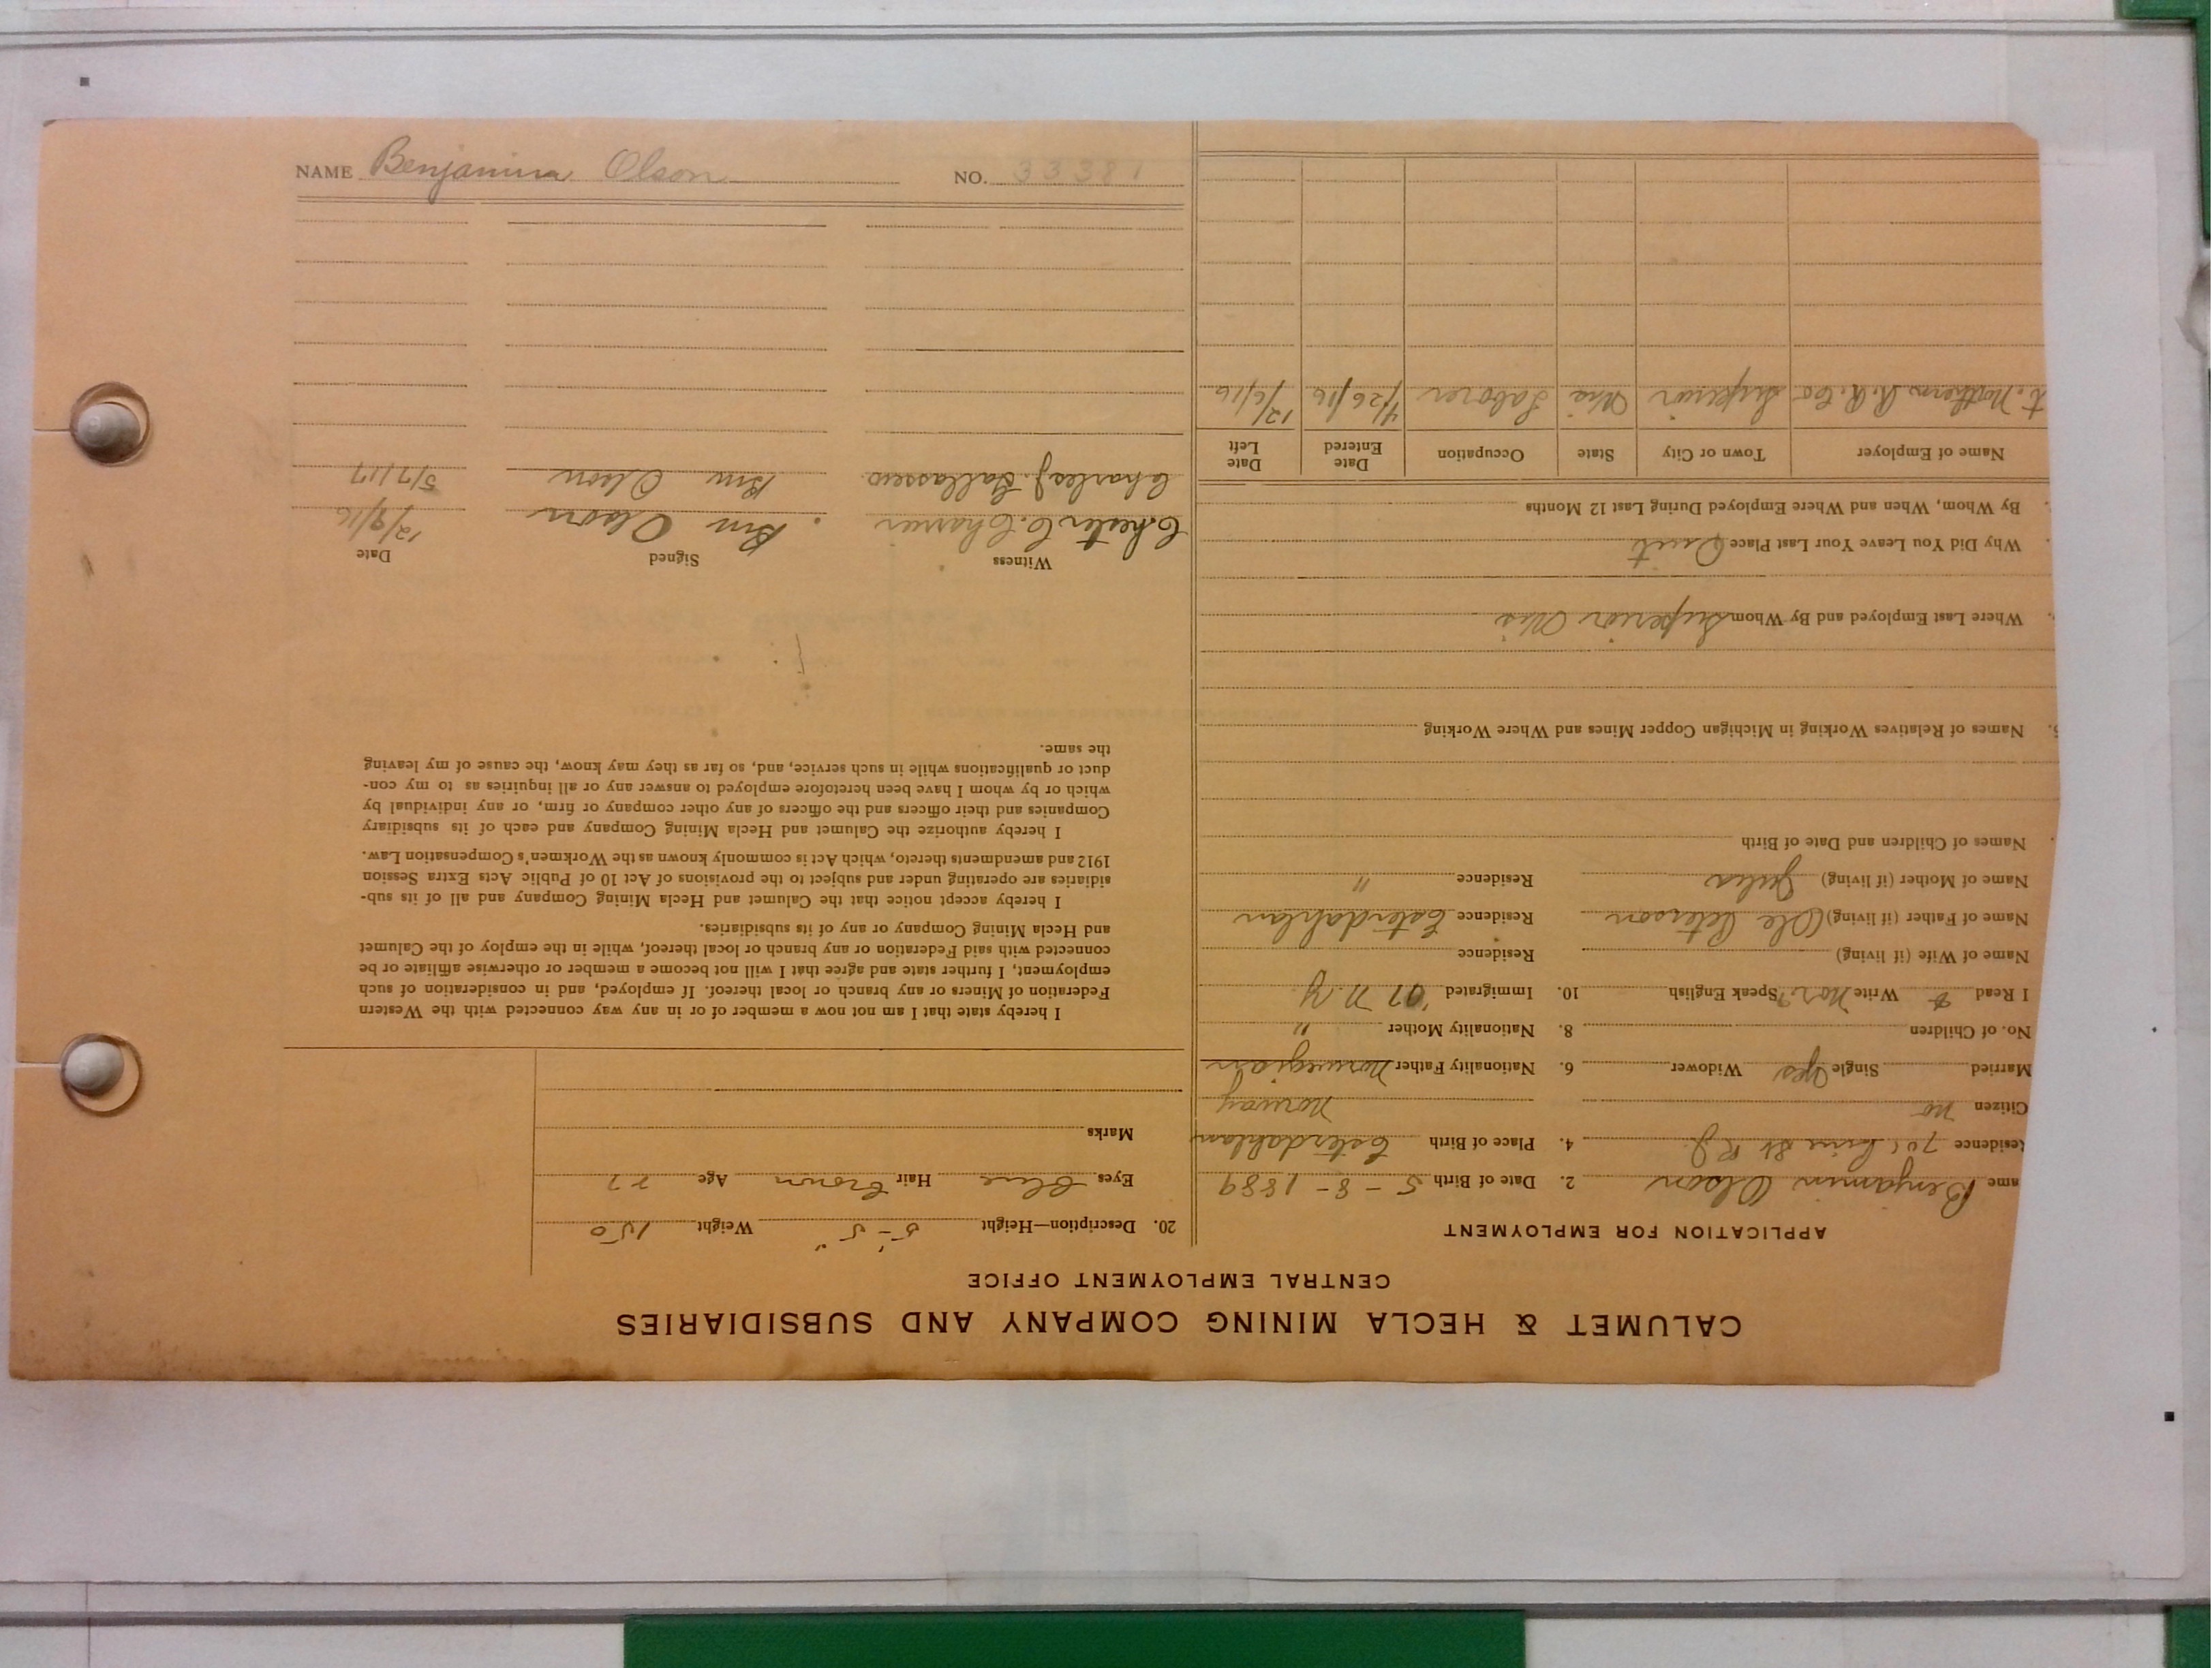 CALUMET & HECLA MINING COMPANY AND SUBSIDIARIES
CENTRAL EMPLOYMENT OFFICE
APPLICATION FOR EMPLOYMENT
ame Benjamin Olson 2. Date of Birth 5-8-1889
Residence 705 Pine St 4. Place of Birth Esterdahlan
Citizen no Norway
Married Single Yes Widower 6. Nationality Father Norwegian
No. of Children 8. Nationality Mother "
I Read & Write Nor. Speak English 10. Immigrated '07 N.Y.
Name of Wife (if living) Residence
Name of Father (if living) Ole Peterson Residence Esterdahlan
Name of Mother (if living) Julia Residence "
Names of Children and Date of Birth
Names of Relatives Working in Michigan Copper Mines and Where Working
Where Last Employed and By Whom Superior Wis
Why Did You Leave Your Last Place Quit
By Whom, When and Where Employed During Last 12 Months
Name of Employer Town or City State Occupation Date Entered Date Left
t. Northern R.R. Co Superior Wis Laborer 4/26/16 12/6/16
20. Description—Height 5'-5" Weight 150
Eyes Blue Hair Brown Age 27
Marks
I hereby state that I am not now a member of or in any way connected with the Western
Federation of Miners or any branch or local thereof. If employed, and in consideration of such
employment, I further state and agree that I will not become a member or otherwise affiliate or be
connected with said Federation or any branch or local thereof, while in the employ of the Calumet
and Hecla Mining Company or any of its subsidiaries.
I hereby accept notice that the Calumet and Hecla Mining Company and all of its sub-
sidiaries are operating under and subject to the provisions of Act 10 of Public Acts Extra Session
1912 and amendments thereto, which Act is commonly known as the Workmen's Compensation Law.
I hereby authorize the Calumet and Hecla Mining Company and each of its subsidiary
Companies and their officers and the officers of any other company or firm, or any individual by
which or by whom I have been heretofore employed to answer any or all inquiries as to my con-
duct or qualifications while in such service, and, so far as they may know, the cause of my leaving
the same.
Witness Signed Date
Chester C. Ben Olson 12/9/16
Charles J. Ben Olson 5/7/17
NAME Benjamin Olson NO. 33381